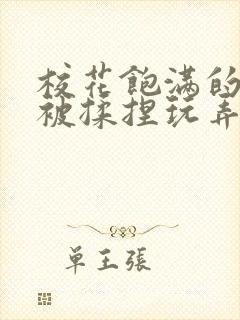 校花飽满的
被揉捏玩弄
单王張